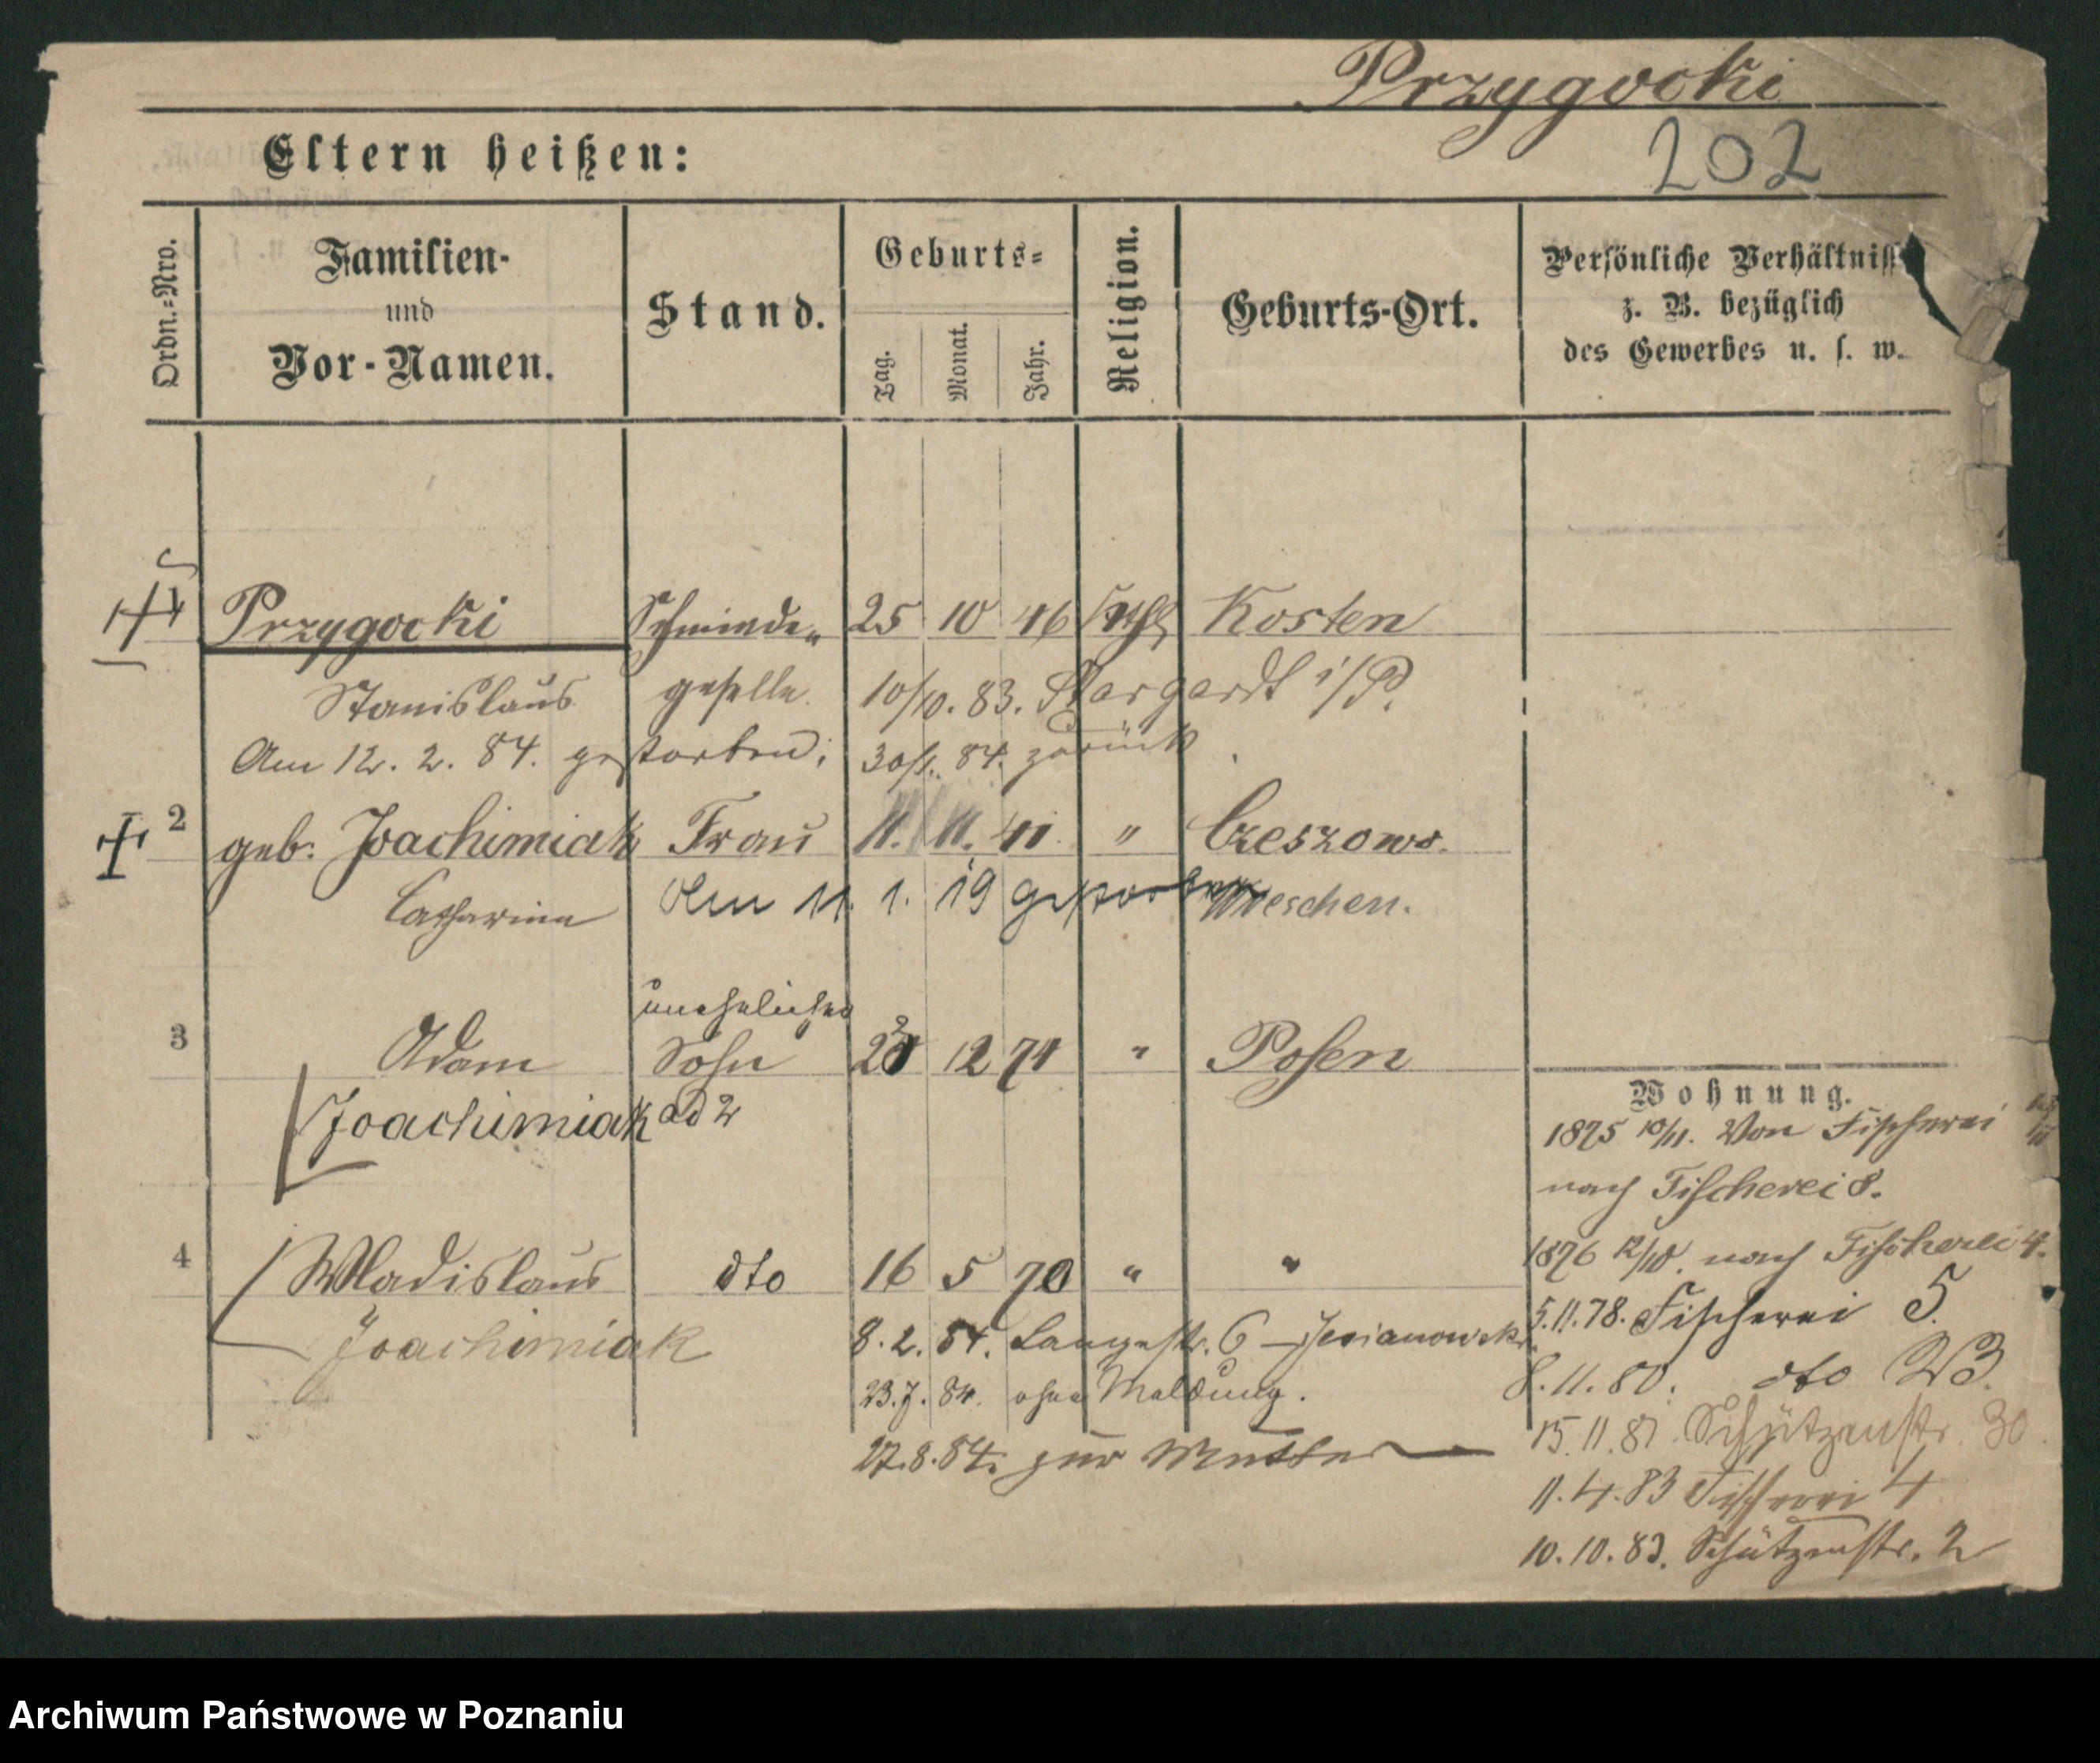 Przygocki
202
Eltern heißen:
Ordn.=Nro.
Familien-
und
Vor-Namen.
Stand.
Geburts=
Tag.
Monat.
Jahr.
Religion.
Geburts-Ort.
Persönliche Verhältniss
z. B. bezüglich
des Gewerbes u. s. w.
1
Przygocki Schmiede- 25 10 46 kath Kosten
Stanislaus geselle. 10/10. 83. Stargardt i/P.
Am 12. 2. 84. gestorben; 30/1. 84. zurück
2 geb. Joachimiak Frau 11. 11. 41 " Czeszowo.
Catharina Am 11. 1. 19 gestorben Wreschen.
unehelicher
3 Adam Sohn 12 74 " Posen
Joachimiak ad 2
Wohnung.
1875 10/11. Von Fischerei
nach Fischerei 8.
4 Wladislaus dto 16 5 70 " "
1876 12/10. nach Fischerei 4.
Joachimiak 8. 2. 84. Langestr. 6
5.11.78. Fischerei 5.
23.7. 84. ohne Meldung.
8.11.80. dto 23.
27.8.84. zur Mutter
15.11.81. Schützenstr. 30.
11.4.83 Fischerei 4
10.10.83. Schützenstr. 2
Archiwum Państwowe w Poznaniu